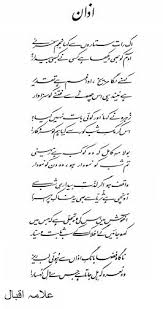 اذان
اک رات ستاروں سے کہا نجم سحر نے
آدم کو بھی دیکھا ہے کسی نے کبھی بیدار
کہنے لگا مریخ، ادا فہم ہے تقدیر
ہے نیند ہی اس چھوٹے سے فتنے کو سزاوار
زہرہ نے کہا، اور کوئی بات نہیں کیا؟
اس کرمک شب کور سے کیا ہم کو سروکار
بولا مہ کامل کہ وہ کوکب ہے زمینی
تم شب کو نمودار ہو، وہ دن کو نمودار
واقف ہو اگر لذت بیداری شب سے
اونچی ہے ثریا سے بھی یہ خاک پراسرار
آغوش میں اس کی وہ تجلی ہے کہ جس میں
کھو جائیں گے افلاک کے سب ثابت و سیار
ناگاہ فضا بانگ اذاں سے ہوئی لبریز
وہ نعرہ کہ ہل جاتا ہے جس سے دل کہسار
علامہ اقبال